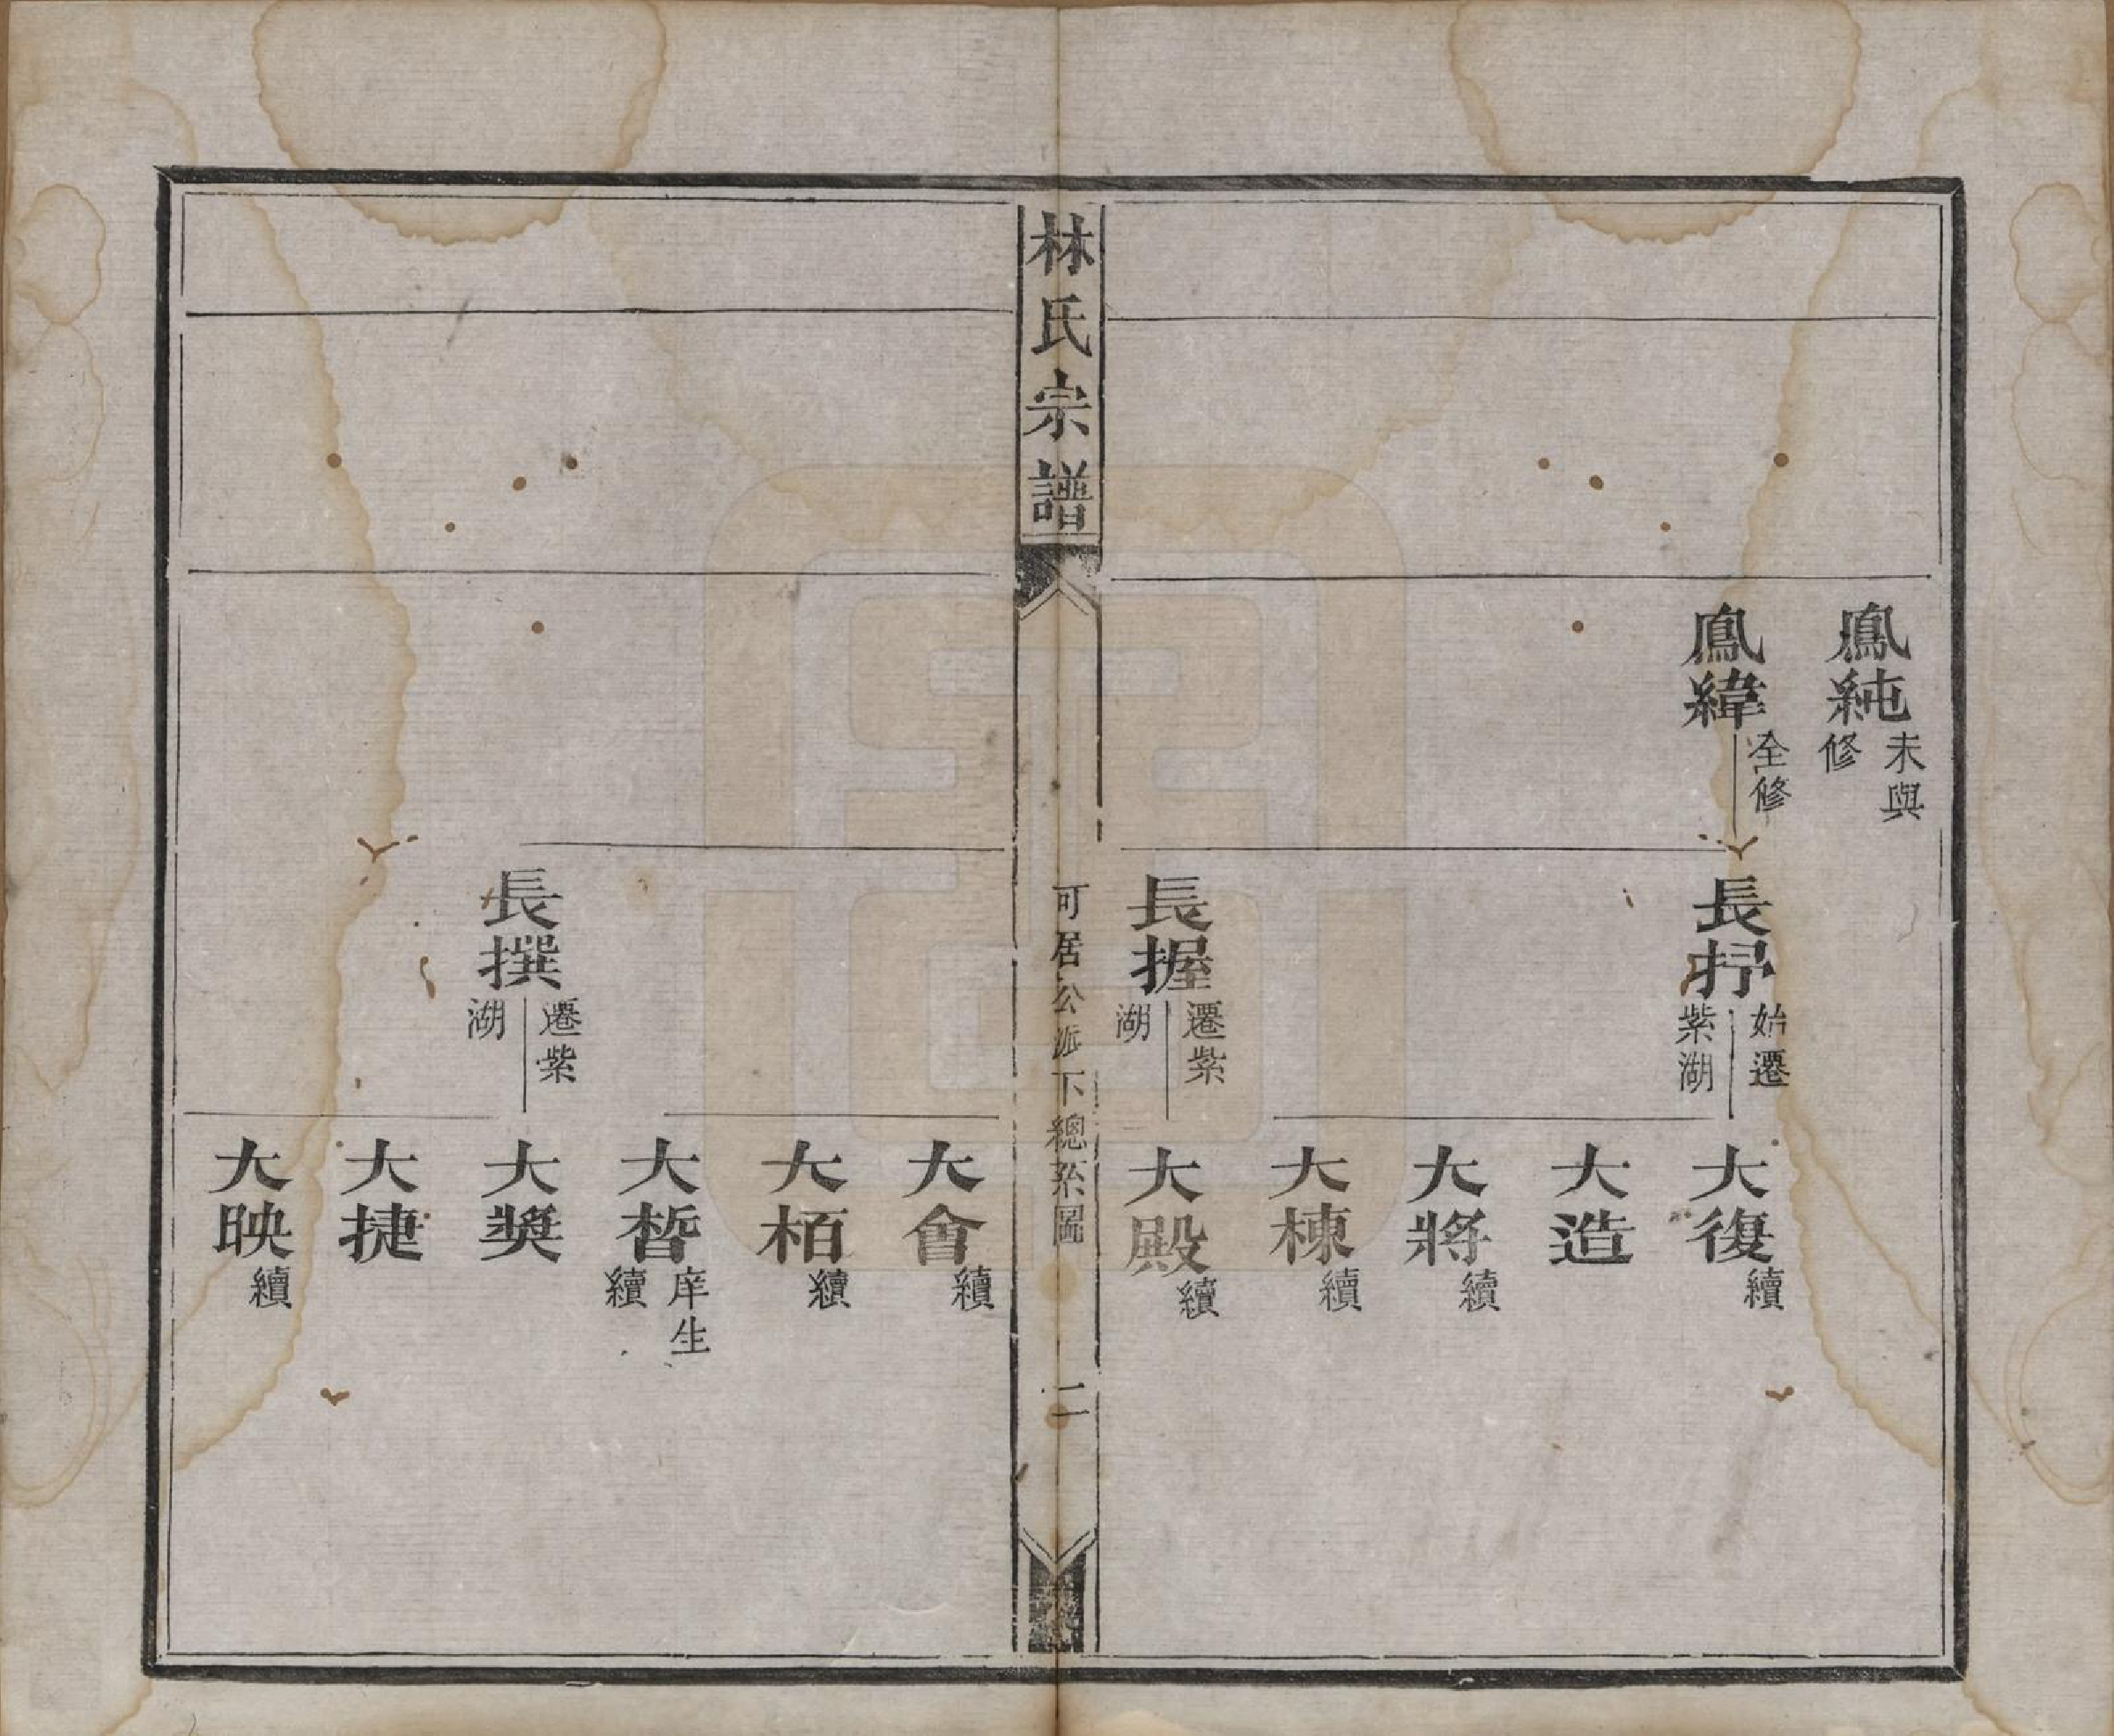 鳳純 未與修
鳳緯 仝修
長抒 始遷紫湖
長握 遷紫湖
大復 續
大造
大將 續
大棟 續
大殿 續
林氏宗譜
可居公派下總系圖
二
長撰 遷紫湖
大會 續
大栢 續
大晳 庠生續
大奬
大捷
大映 續